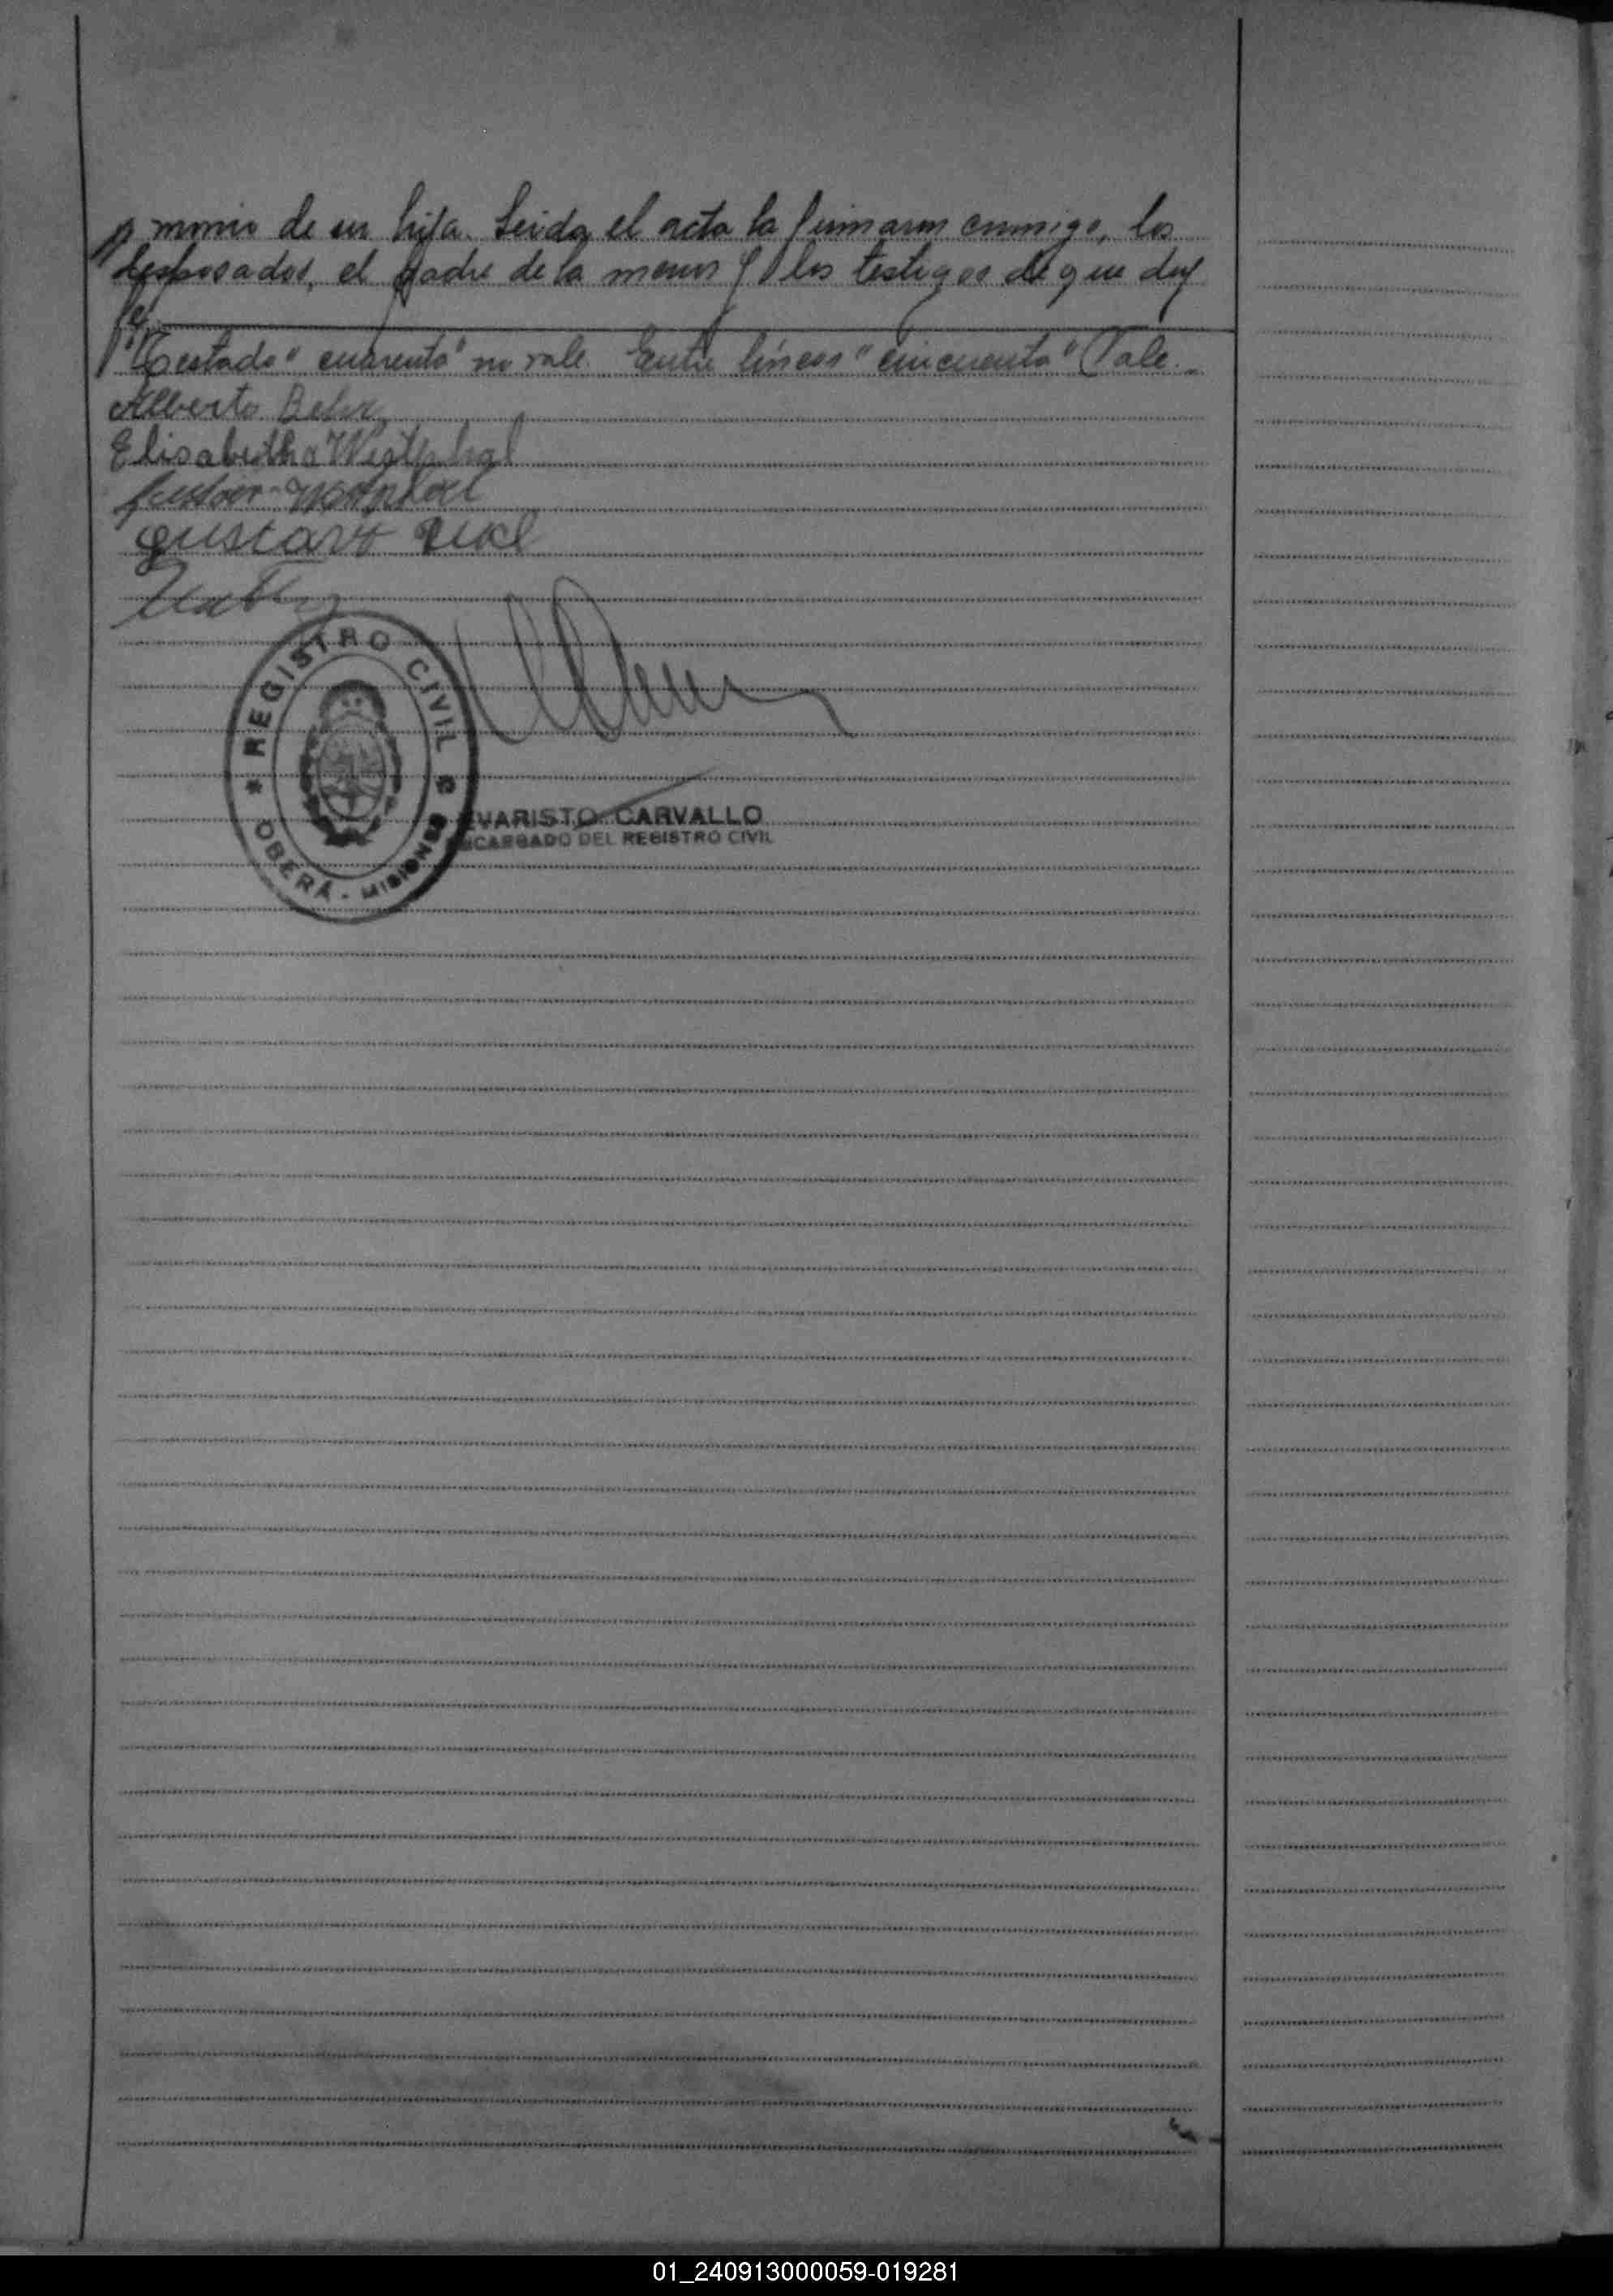 monio de su hija. Leida el acta la firmaron conmigo, los
desposados, el padre de la menor y los testigos de que doy
fe.
Testado "cuarenta" no vale. Entre líneas "cincuenta" Vale.-
Alberto
Elisabetha Westphal
Westphal
Gustavo
REGISTRO CIVIL
OBERÁ - MISIONES
EVARISTO CARVALLO
ENCARGADO DEL REGISTRO CIVIL
01_240913000059-019281